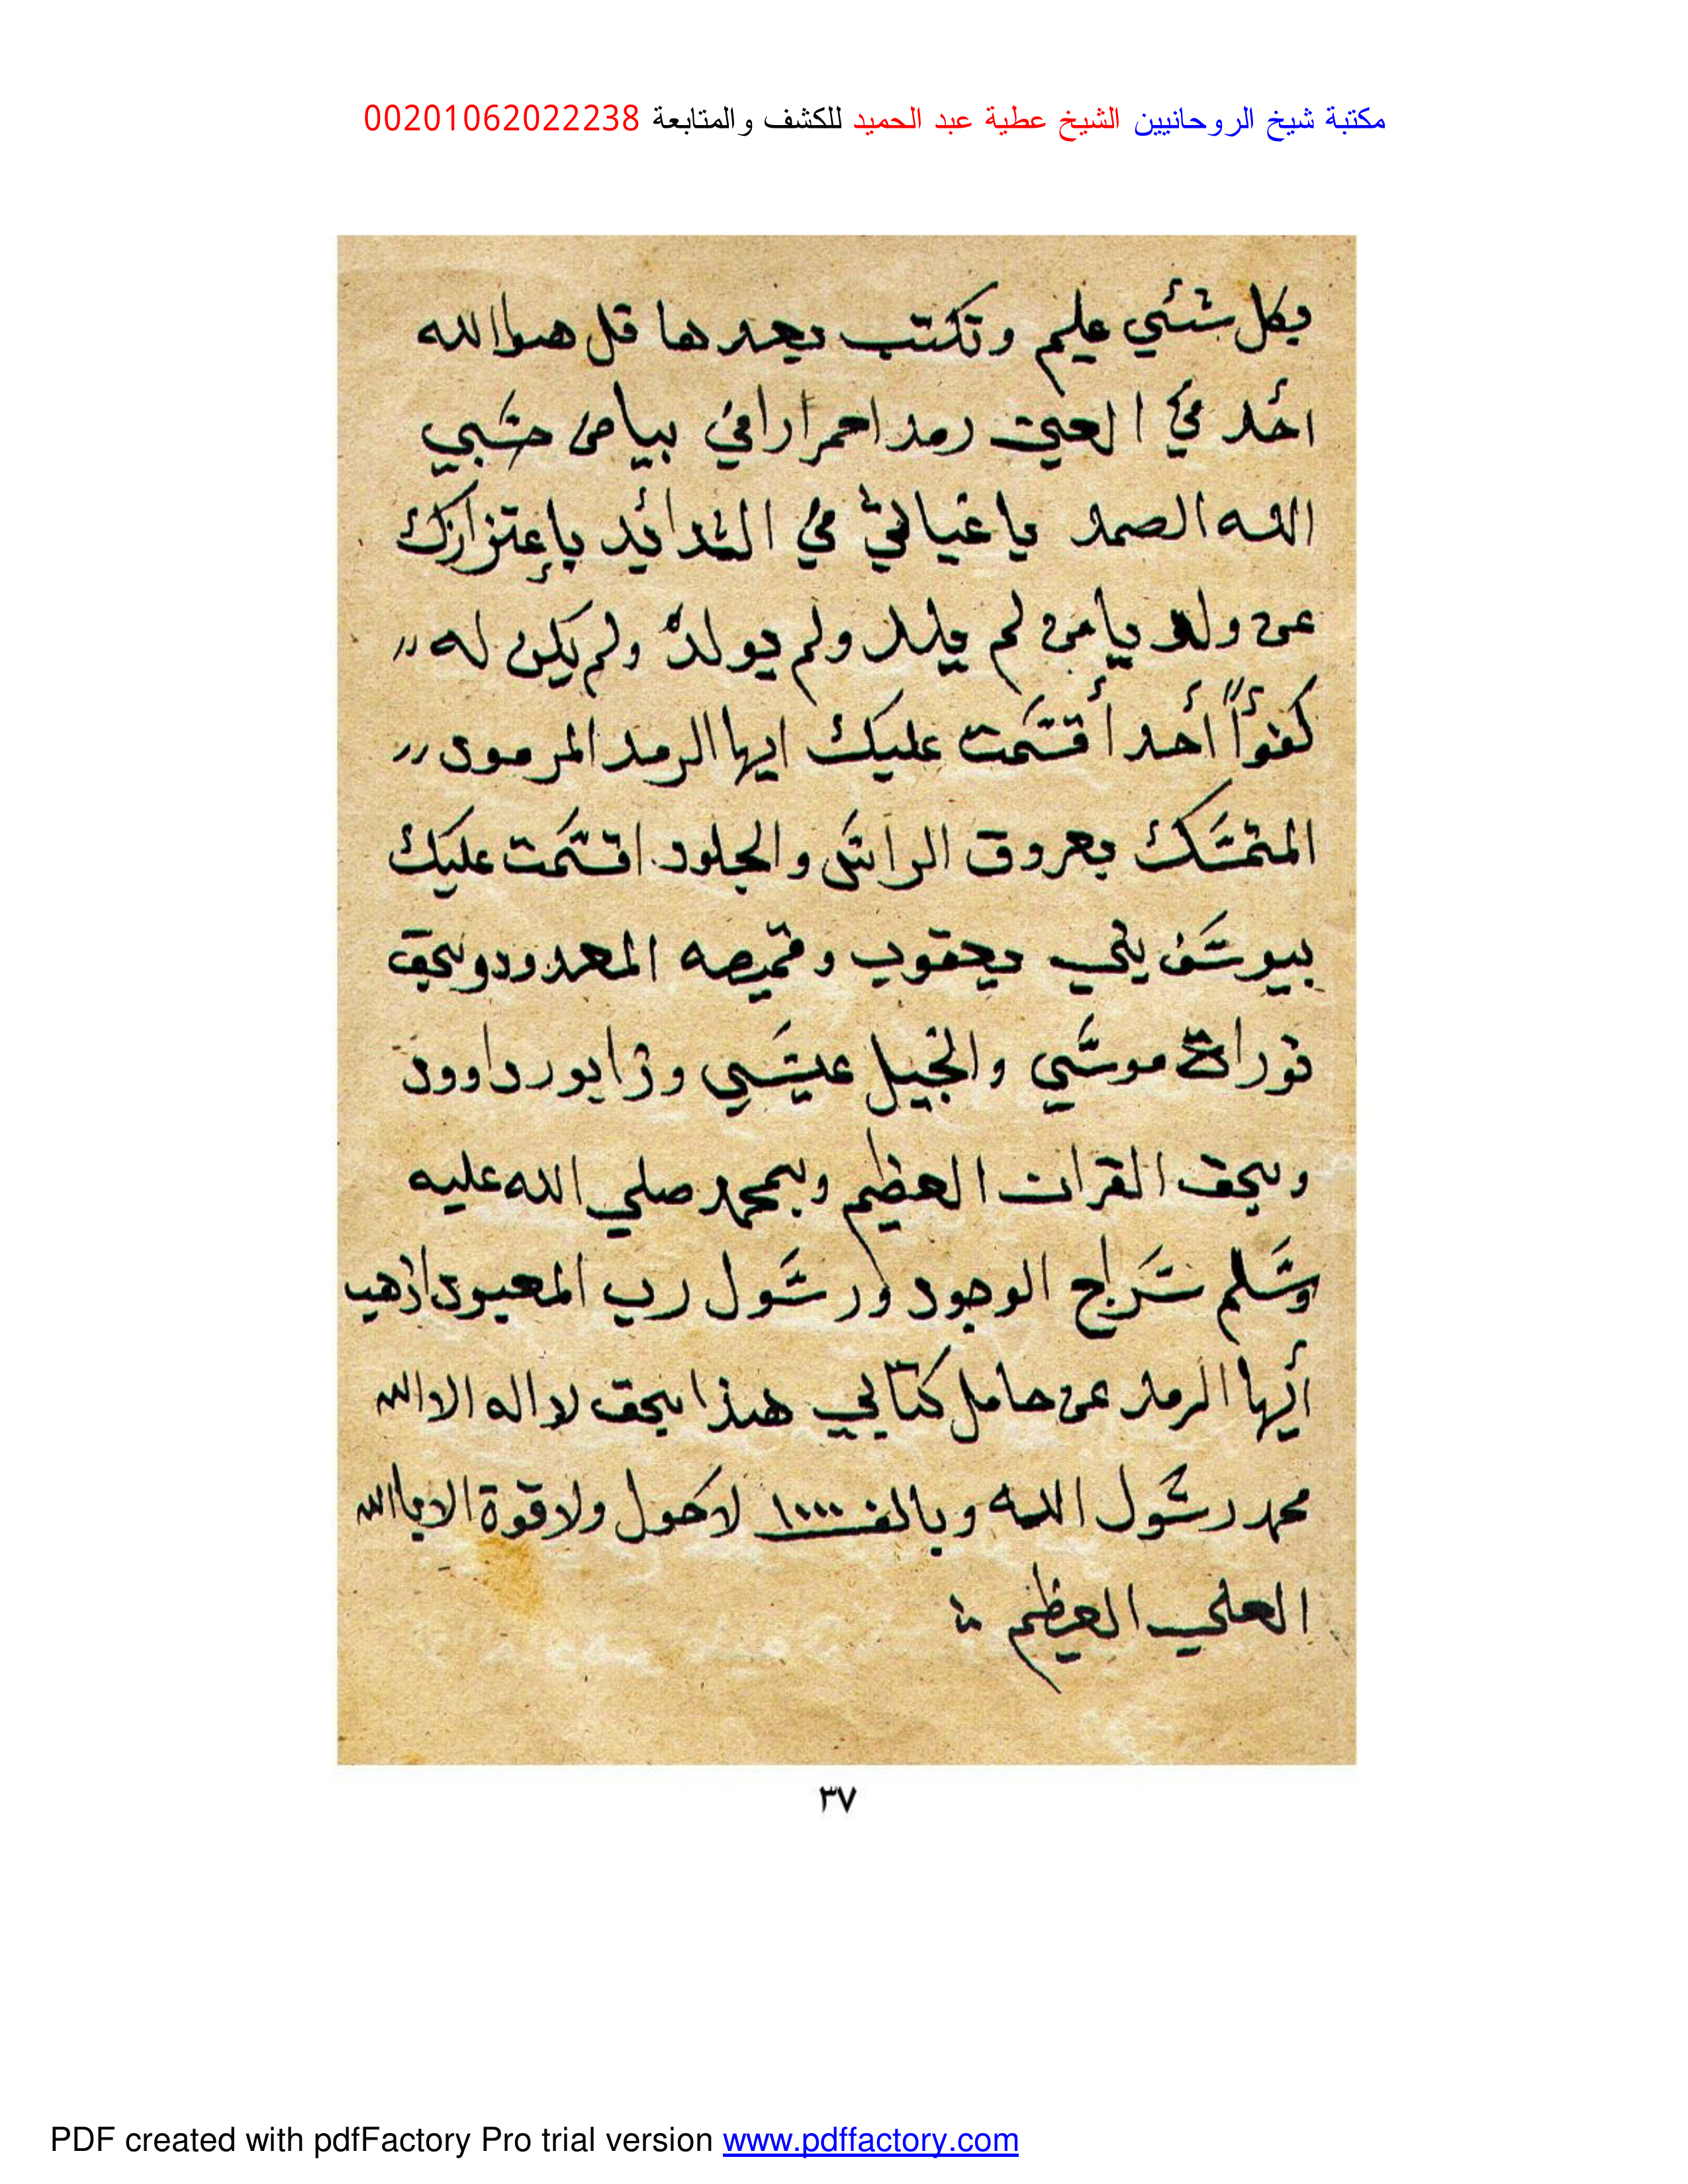 مكتبة شيخ الروحانيين الشيخ عطية عبد الحميد للكشف والمتابعة 00201062022238
بكل شئي عليم وتكتب بعدها قل هوالله
أحد في العين رمد احمرارافي بياض حسبي
الله الصمد ياغياثي في الشدائد بإعتزازك
عن ولد يامن لم يلد ولم يولد ولم يكن له
كفوأ أحد أقسمت عليك ايها الرمد المرمود
المتمسك بعروق الراس والجلود اقسمت عليك
بيوسف بني يعقوب وقميصه المعدود وبحق
توراة موسي وانجيل عيسي وزابور داوود
وبحق القران العظيم وبمحمد صلي الله عليه
وسلم سراج الوجود ورسول رب المعبود اذهب
أيها الرمد عن حامل كتابي هذا بحق لا اله الا الله
محمد رسول الله وبالف ١٠٠٠ لاحول ولا قوة الا باالله
العلي العظيم
٣٧
PDF created with pdfFactory Pro trial version www.pdffactory.com